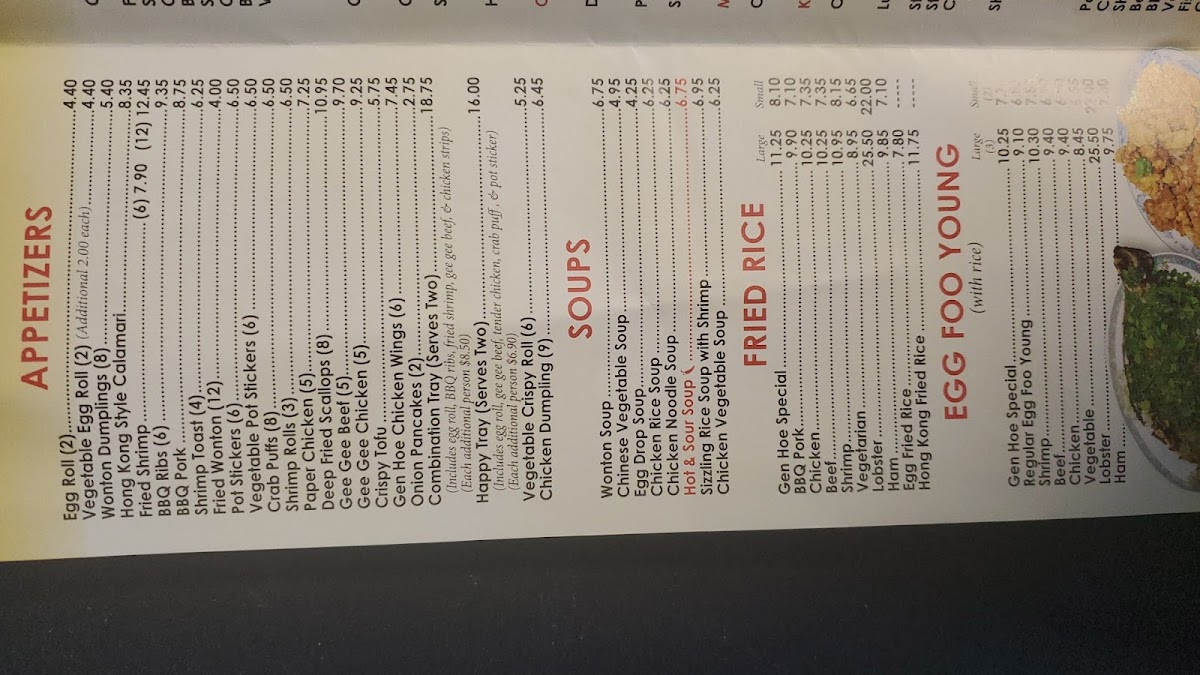 APPETIZERS
Egg Roll (2)..........4.40
Vegetable Egg Roll (2) (Additional 2.00 each)..........4.40
Wonton Dumplings (8)..........5.40
Hong Kong Style Calamari..........8.35
Fried Shrimp..........(6) 7.90 (12) 12.45
BBQ Ribs (6)..........9.35
BBQ Pork..........8.75
Shrimp Toast (4)..........6.25
Fried Wonton (12)..........4.00
Pot Stickers (6)..........6.50
Vegetable Pot Stickers (6)..........6.50
Crab Puffs (8)..........6.50
Shrimp Rolls (3)..........6.50
Paper Chicken (5)..........7.25
Deep Fried Scallops (8)..........10.95
Gee Gee Beef (5)..........9.70
Gee Gee Chicken (5)..........9.25
Crispy Tofu..........5.75
Gen Hoe Chicken Wings (6)..........7.45
Onion Pancakes (2)..........2.75
Combination Tray (Serves Two)..........18.75
(Includes egg roll, BBQ ribs, fried shrimp, gee gee beef, & chicken strips)
(Each additional person $8.50)
Happy Tray (Serves Two)..........16.00
(Includes egg roll, gee gee beef, tender chicken, crab puff, & pot sticker)
(Each additional person $6.90)
Vegetable Crispy Roll (6)..........5.25
Chicken Dumpling (9)..........6.45
SOUPS
Wonton Soup..........6.75
Chinese Vegetable Soup..........4.95
Egg Drop Soup..........4.25
Chicken Rice Soup..........6.25
Chicken Noodle Soup..........6.25
Hot & Sour Soup..........6.75
Sizzling Rice Soup with Shrimp..........6.95
Chicken Vegetable Soup..........6.25
FRIED RICE
Large Small
Gen Hoe Special..........11.25 8.10
BBQ Pork..........9.90 7.10
Chicken..........10.25 7.35
Beef..........10.25 7.35
Shrimp..........10.95 8.15
Vegetarian..........8.95 6.65
Lobster..........25.50 22.00
Ham..........9.85 7.10
Egg Fried Rice..........7.80 -----
Hong Kong Fried Rice..........11.75 -----
EGG FOO YOUNG
(with rice)
Large Small
(3) (2)
Gen Hoe Special..........10.25
Regular Egg Foo Young..........9.10
Shrimp..........10.30
Beef..........9.40
Chicken..........9.40
Vegetable..........8.45
Lobster..........25.50
Ham..........9.75